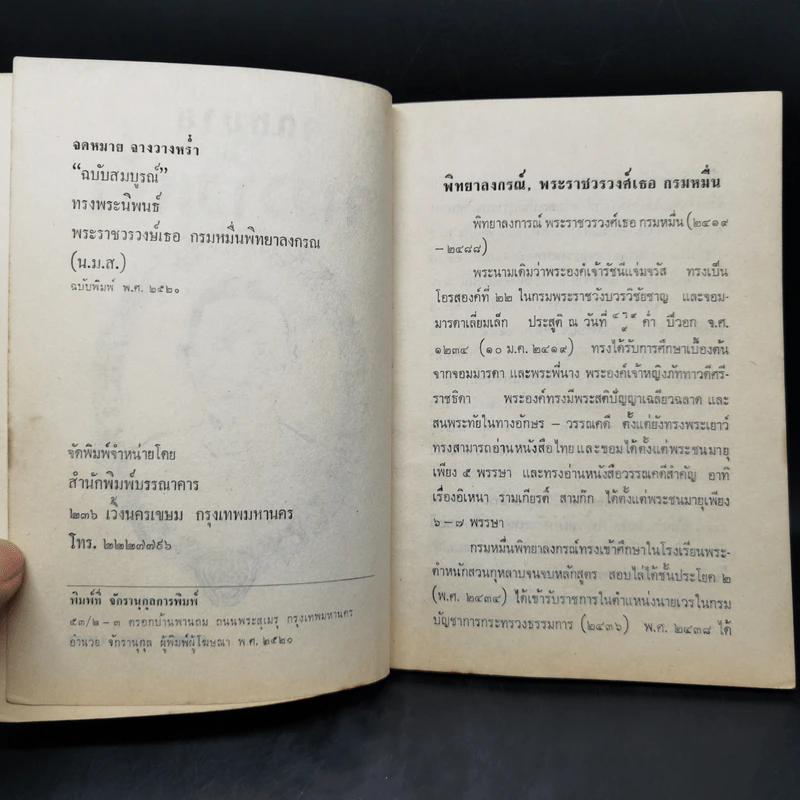 จดหมาย จางวางหร่ำ
“ฉบับสมบูรณ์”
ทรงพระนิพนธ์
พระราชวรวงษ์เธอ กรมหมื่นพิทยาลงกรณ
(น.ม.ส.)
ฉบับพิมพ์ พ.ศ. ๒๕๒๐
จัดพิมพ์จำหน่ายโดย
สำนักพิมพ์บรรณาคาร
๒๓๖ เวิ้งนครเขษม กรุงเทพมหานคร
โทร. ๒๒๒๗๗๙๖
พิมพ์ที่ จักรานุกูลการพิมพ์
๕๓/๒ – ๓ ตรอกบ้านพานถม ถนนพระสุเมรุ กรุงเทพมหานคร
อำนวย จักรานุกูล ผู้พิมพ์ผู้โฆษณา พ.ศ. ๒๕๒๐
พิทยาลงกรณ์, พระราชวรวงศ์เธอ กรมหมื่น
พิทยาลงการณ์ พระราชวรวงศ์เธอ กรมหมื่น (๒๔๑๙
– ๒๔๘๘)
พระนามเดิมว่าพระองค์เจ้ารัชนีแจ่มจรัส ทรงเป็น
โอรสองค์ที่ ๒๒ ในกรมพระราชวังบวรวิชัยชาญ และจอม-
มารดาเลี่ยมเล็ก ประสูติ ณ วันที่ ค่ำ ปีวอก จ.ศ.
๑๒๓๔ (๑๐ ม.ค. ๒๔๑๙) ทรงได้รับการศึกษาเบื้องต้น
จากจอมมารดา และพระพี่นาง พระองค์เจ้าหญิงภัททาวดีศรี-
ราชธิดา พระองค์ทรงมีพระสติปัญญาเฉลียวฉลาด และ
สนพระทัยในทางอักษร – วรรณคดี ตั้งแต่ยังทรงพระเยาว์
ทรงสามารถอ่านหนังสือไทย และขอมได้ตั้งแต่พระชนมายุ
เพียง ๕ พรรษา และทรงอ่านหนังสือวรรณคดีสำคัญ อาทิ
เรื่องอิเหนา รามเกียรติ์ สามก๊ก ได้ตั้งแต่พระชนมายุเพียง
๖ – ๗ พรรษา
กรมหมื่นพิทยาลงกรณ์ทรงเข้าศึกษาในโรงเรียนพระ-
ตำหนักสวนกุหลาบจนจบหลักสูตร สอบไล่ได้ชั้นประโยค ๒
(พ.ศ. ๒๔๓๔) ได้เข้ารับราชการในตำแหน่งนายเวรในกรม
บัญชาการกระทรวงธรรมการ (๒๔๓๖) พ.ศ. ๒๔๓๘ ได้